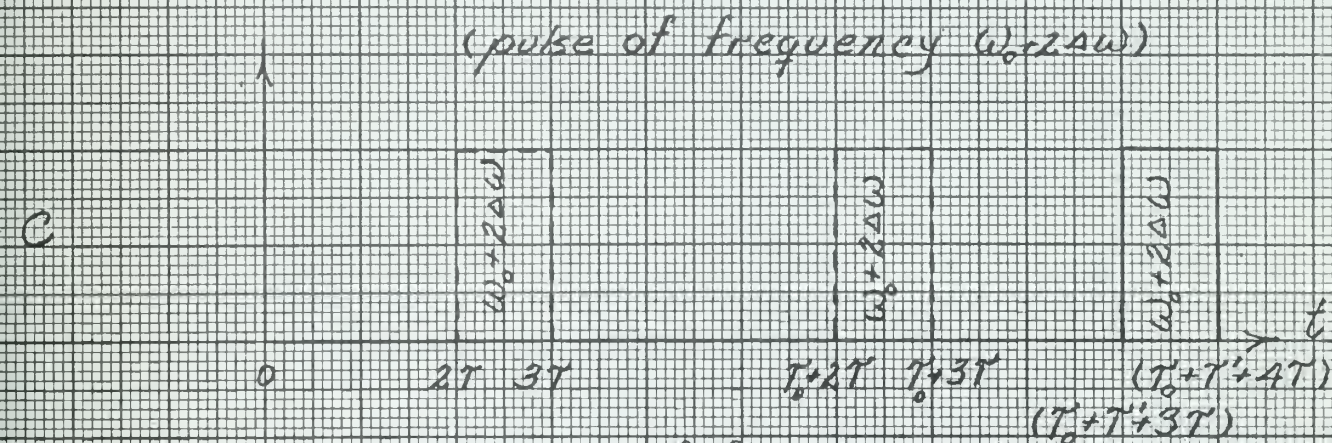 (pulse of frequency ω₀+2Δω)
C
ω₀+2Δω
ω₀+2Δω
ω₀+2Δω
t
0 2τ 3τ τ₀+2τ τ₀+3τ (τ₀+τ'+4τ)
(τ₀+τ'+3τ)